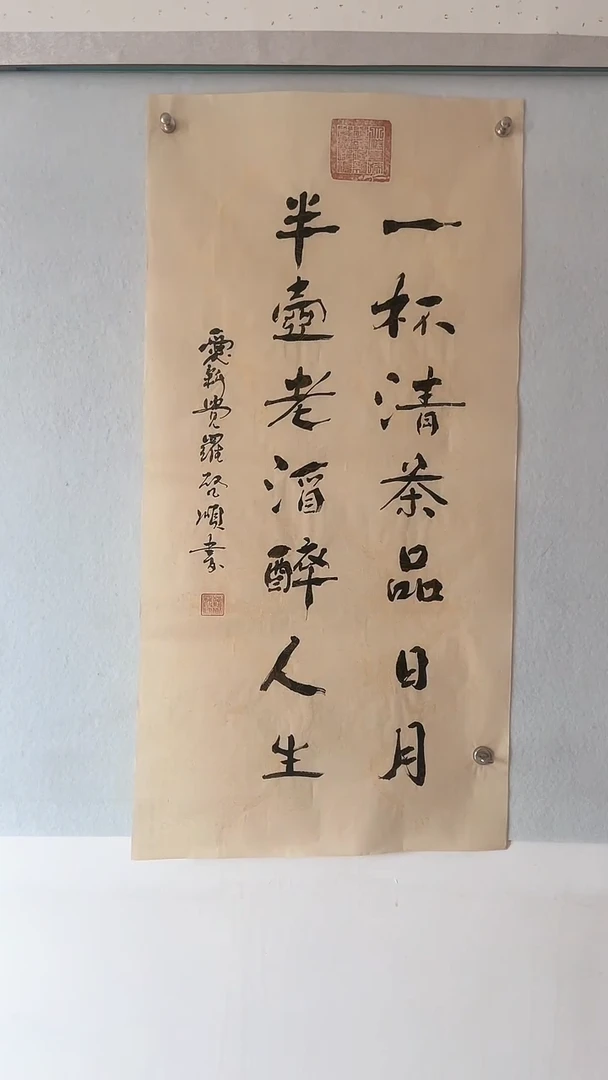 一杯清茶品日月
半壺老酒醉人生
愛新覺羅啓順書